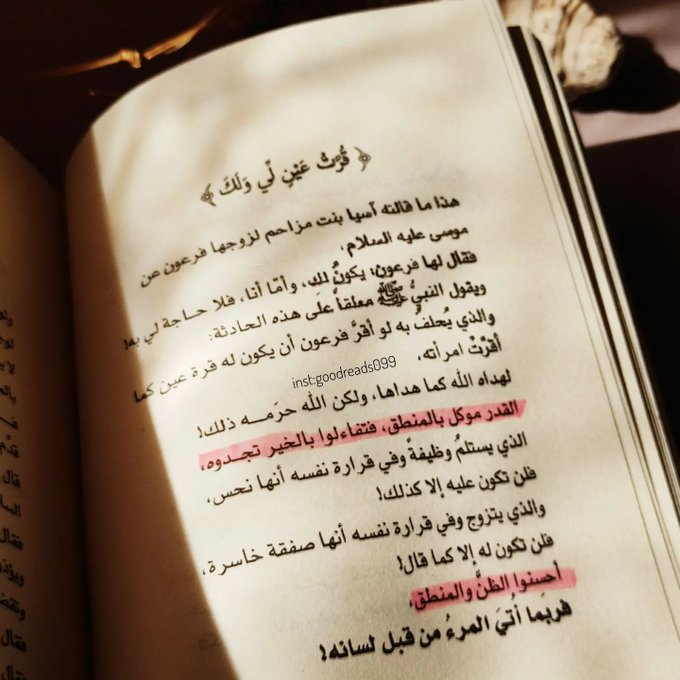 ﴿ قُرَّتُ عَيْنٍ لِّي وَلَكَ ﴾
هذا ما قالته آسيا بنت مزاحم لزوجها فرعون عن
موسى عليه السلام،
فقال لها فرعون: يكونُ لك، وأمّا أنا، فلا حاجة لي به!
ويقول النبيُّ ﷺ معلقاً على هذه الحادثة:
والذي يُحلفُ به لو أقرَّ فرعون أن يكون له قرة عين كما
أقرَّتْ امرأته،
لهداه الله كما هداها، ولكن الله حرَمه ذلك!
القدر موكل بالمنطق، فتفاءلوا بالخير تجدوه،
الذي يستلمُ وظيفةً وفي قرارة نفسه أنها نحس،
فلن تكون عليه إلا كذلك!
والذي يتزوج وفي قرارة نفسه أنها صفقة خاسرة،
فلن تكون له إلا كما قال!
أحسنوا الظنَّ والمنطق،
فربما أُتيَ المرءُ من قبل لسانه!
inst:goodreads099